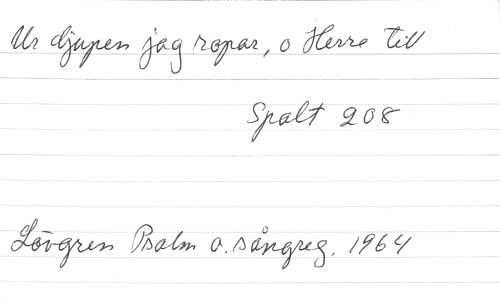 Ur djupen jag ropar, o Herre till
Spalt 208
Lövgren Psalm o. sångreg. 1964